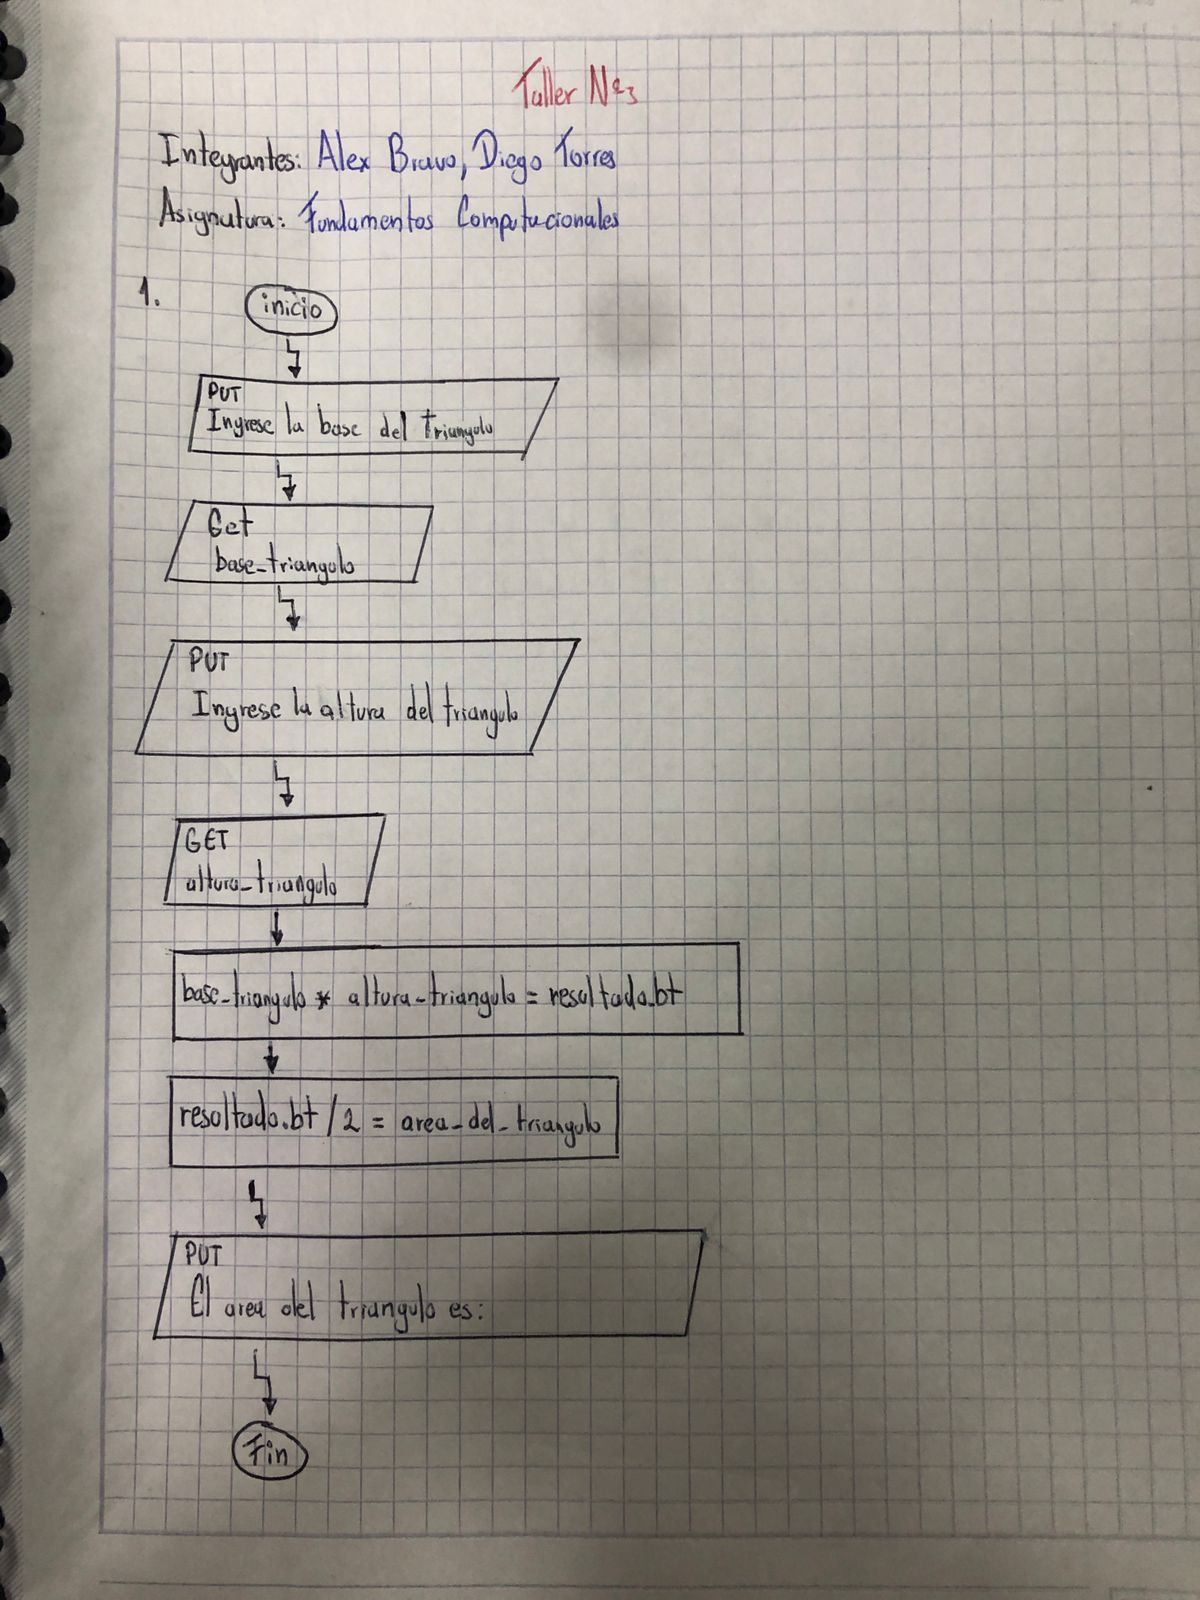 Taller Nº3
Integrantes: Alex Bravo, Diego Torres
Asignatura: Fundamentos Computacionales
1.
inicio
PUT
Ingrese la base del Triangulo
Get
base_triangulo
PUT
Ingrese la altura del triangulo
GET
altura_triangulo
base_triangulo * altura_triangulo = resultado.bt
resultado.bt / 2 = area_del_triangulo
PUT
El area del triangulo es:
Fin